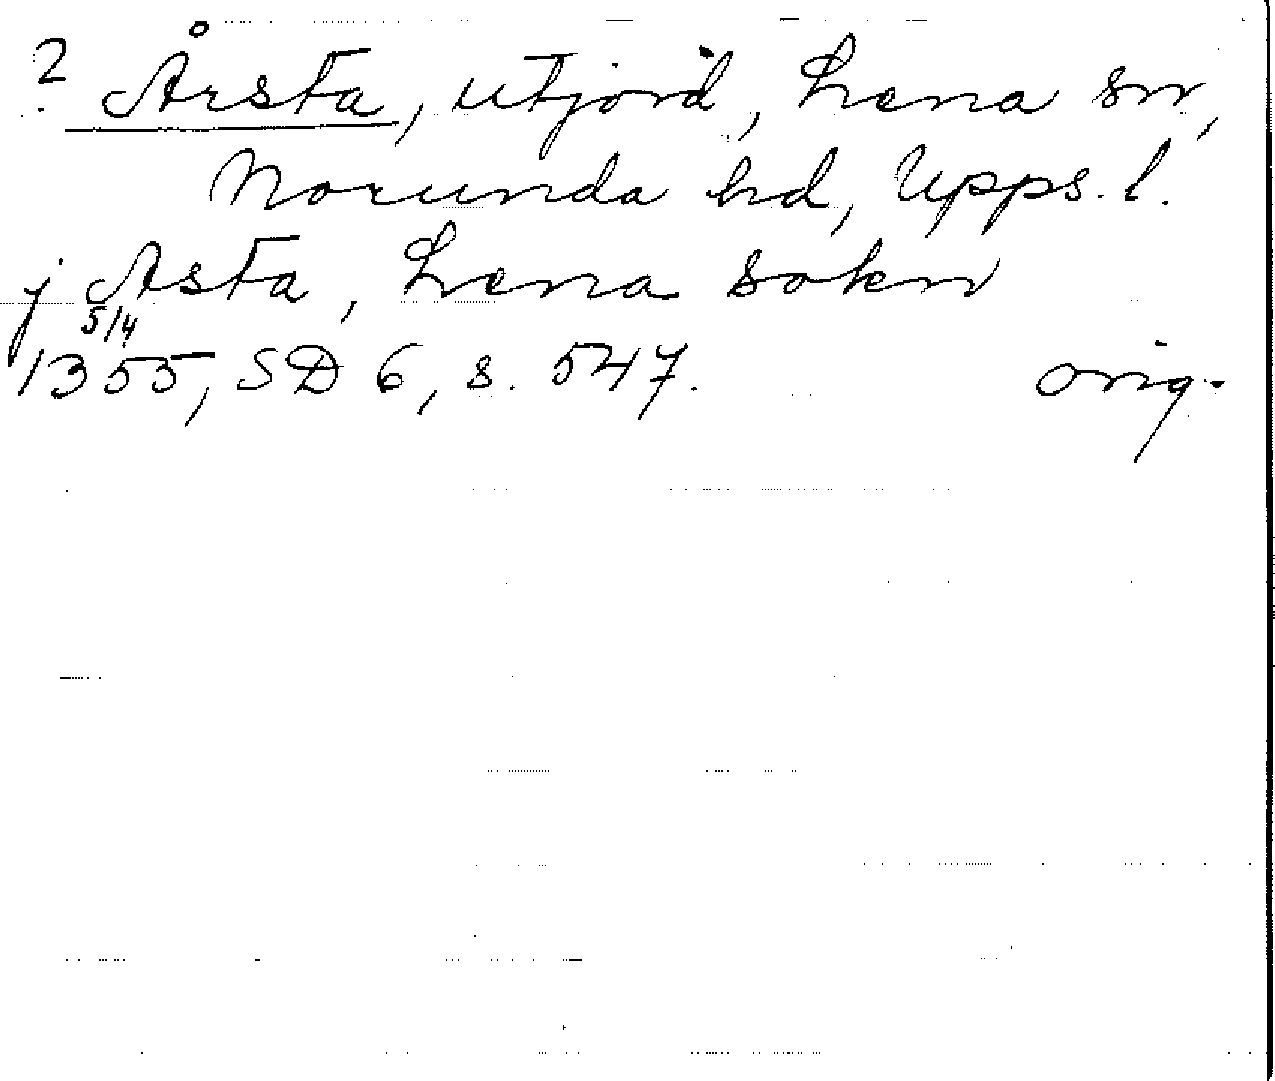 ? Årsta, utjord, Lena sn,
Norunda hd, Upps. l.
j Asta, Lena sokn
5/4
1355, SD 6, s. 547. orig.